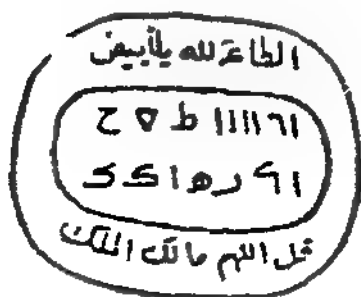 الطاعة لله يا أبيض
١٩١١١١ ط ٥ ح
١٩ ر ه ا ک ک
قل اللهم مالك الملك